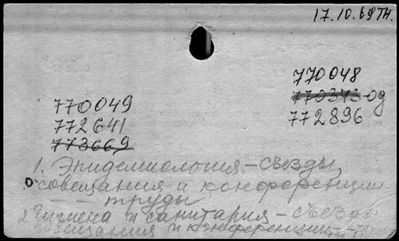 17.10.69 тн.
770048
770343 од
770049
772641
772896
773669
1. Эпидемиология - съезды,
совещания и конференции
- труды
2. Гигиена и санитария - съезды
совещания и конференции